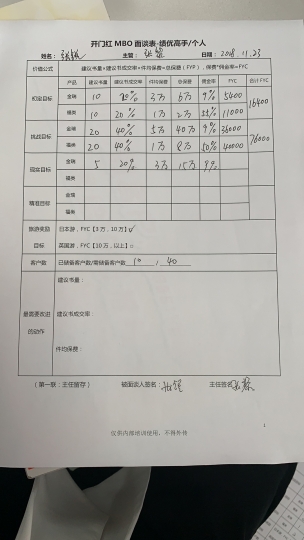 开门红 MBO 面谈表-绩优高手/个人
姓名： 主管： 日期：2018.11.23
价值公式 建议书量*建议书成交率*件均保费=总保费（FYP），保费*佣金率=FYC
产品 建议书量 建议书成交率 件均保费 总保费 佣金率 FYC 合计FYC
初定目标 金瑞 10 20% 3万 6万 9% 5400 16400
福类 10 20% 1万 2万 55% 11000
挑战目标 金瑞 20 40% 5万 40万 9% 36000 76000
福类 20 40% 1万 8万 50% 40000
现实目标 金瑞 5 20% 3万 15万 9%
福类
精准目标 金瑞
福类
旅游奖励 日本游，FYC【3万，10万】√
目标 英国游，FYC【10万，以上】□
客户数 已储备客户数/需储备客户数 10 / 40
最需要改进的动作
建议书量：
建议书成交率：
件均保费：
（第一联：主任留存） 被面谈人签名： 主任签名：
1
仅供内部培训使用，不得外传